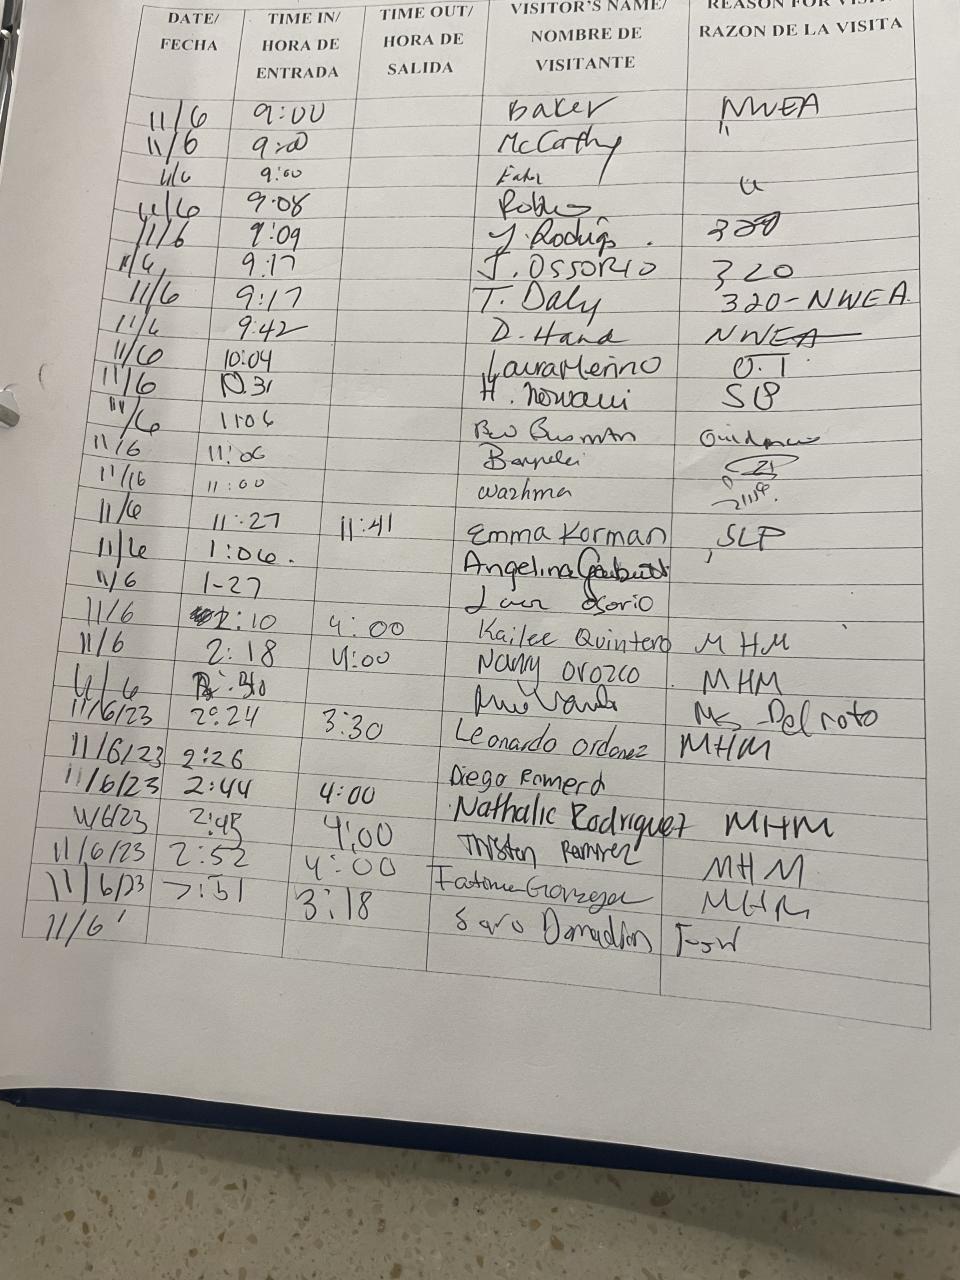 DATE/ TIME IN/ TIME OUT/ VISITOR'S NAME/ REASON FOR
FECHA HORA DE HORA DE NOMBRE DE RAZON DE LA VISITA
ENTRADA SALIDA VISITANTE
11/6 9:00 Baker NWEA
11/6 9:00 McCarthy "
11/6 9:00
11/6 9:08 Robles
11/6 9:09 Y. Rodrigo
11/6 9:17 J. OSSORIO 320
11/6 9:17 T. Daly 320-NWEA
11/6 9:42 D. Hand NWEA
11/6 10:04 Laura Merino O.T
11/6 10:31 H.
11/6 11:06 Guidance
11/6 11:06
11/16 11:00 wazhma
11/6 11:27 11:41 Emma Korman SLP
11/6 1:06. Angelina
11/6 1-27 Osorio
11/6 2:10 4:00 Kailee Quintero MHM
11/6 2:18 4:00 Nancy Orozco MHM
11/6 Ms. Del roto
11/6/23 2:24 3:30 Leonardo Ordonez MHM
11/6/23 2:26 Diego Romero
11/6/23 2:44 4:00 Nathalie Rodriguez MHM
11/6/23 2:45 4:00 Ramirez MHM
11/6/23 2:52 4:00 MHM
11/6/23 2:51 3:18 Saro
11/6